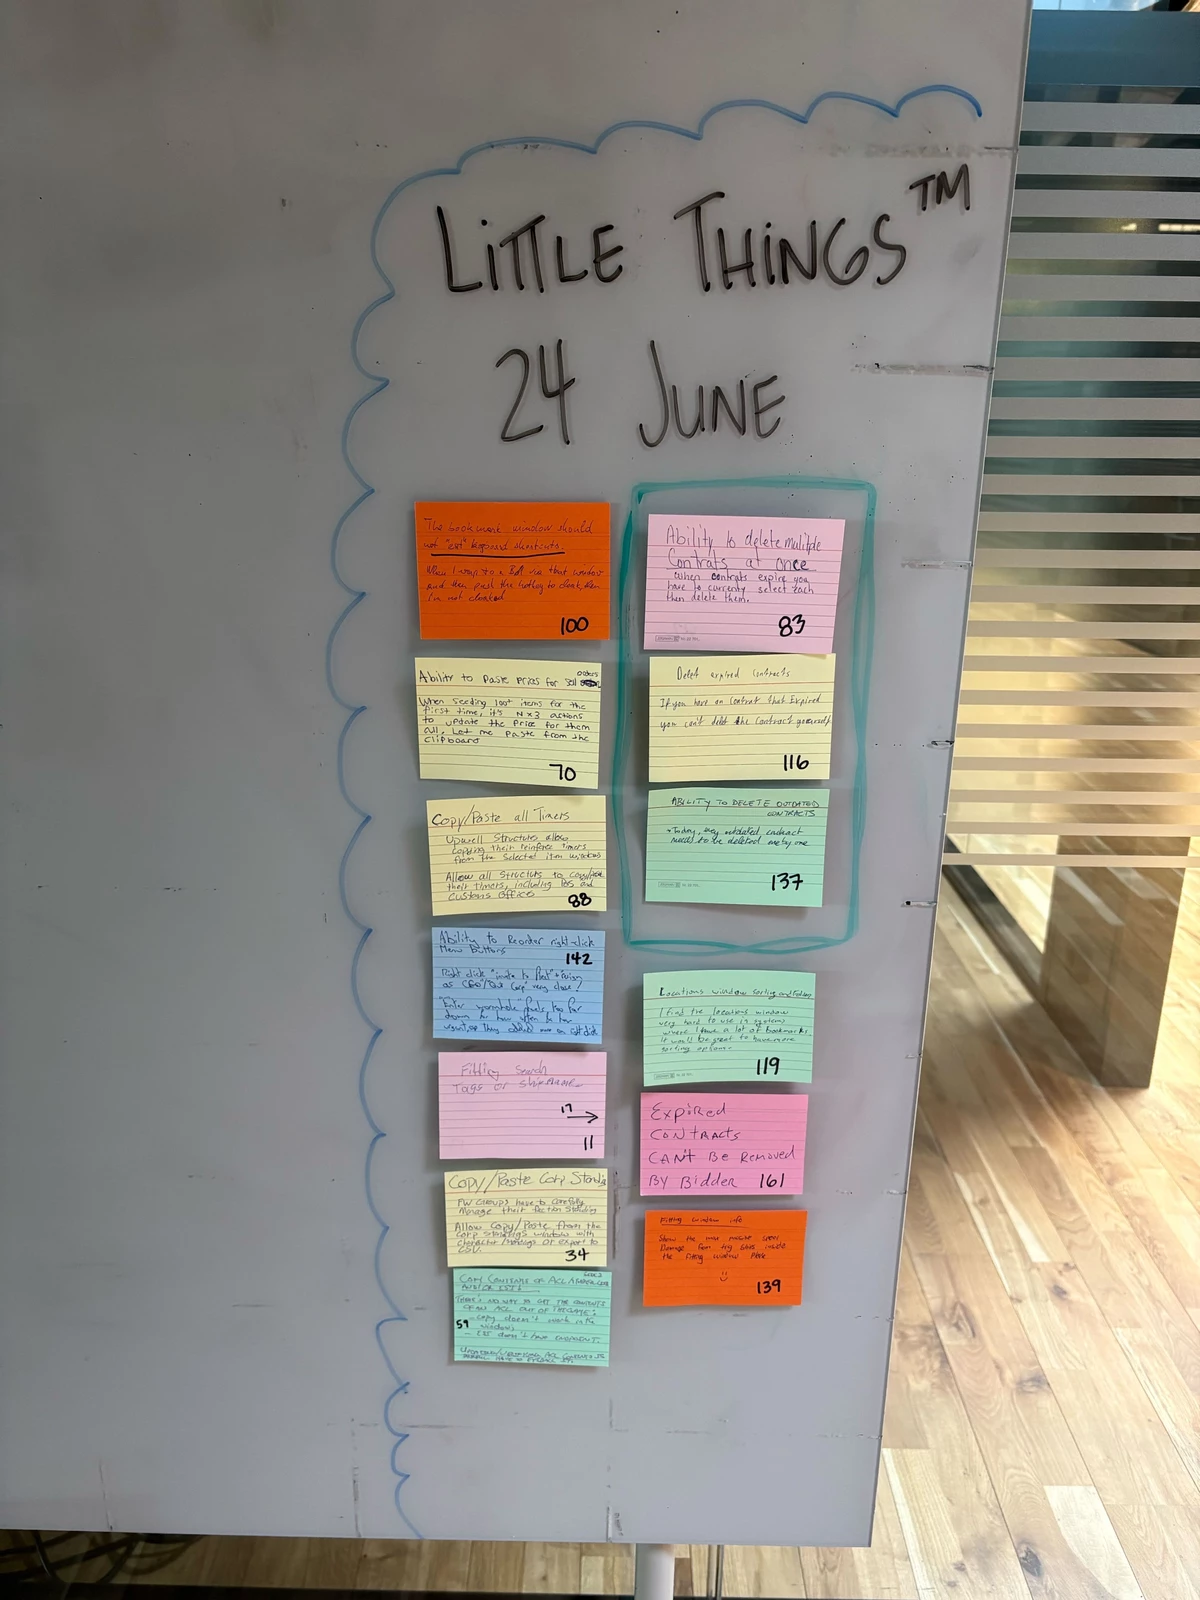 LITTLE THINGS™
24 JUNE
The bookmark window should
not "eat" keyboard shortcuts.
When I warp to a BM via that window
and then push the hotkey to cloak, then
I'm not cloaked
100
Ability to Paste Prices for Sell orders
When seeding 100+ items for the
first time, it's N x 3 actions
to update the Price for them
all. Let me Paste from the
Clipboard
70
Copy/Paste all Timers
Upwell Structures allow
copying their reinforce timers
from the selected item windows
Allow all structures to copy/paste
their timers, including POS and
Customs Offices
88
Ability to Reorder right-click
Menu Buttons
142
Right click "invite to fleet"
as CEO" very close!
"Enter wormhole" feels too far
down
Fitting Search
Tags or shipname
17 →
11
Copy/Paste Corp Standi
FW Groups have to carefully
Manage their faction Standing
Allow Copy/Paste from the
Corp Standings windows with
or export to
CSV.
34
Copy Contents of ACL
THERE'S NO WAY TO GET THE CONTENTS
OF AN ACL OUT OF THE GAME:
- copy doesn't work in the
59 window
- ESI doesn't have ENDPOINT.
Ability to delete mulitple
Contrats at once
when contrats expire you
have to currently select each
then delete them.
83
Delet expired contracts
If you have an contrat that Expired
you can't delet the contract yourself
116
ABILITY TO DELETE OUTDATED
CONTRACTS
- Today, outdated contract
needs to be deleted one by one
137
Locations window sorting and
I find the locations window
very hard to use in systems
where I have a lot of bookmarks
it would be great to have more
sorting options
119
Expired
CONTRACTS
CAN'T BE REMOVED
BY BIDDER 161
Fitting window info
Show the max
Damage from inside
the fitting window
139